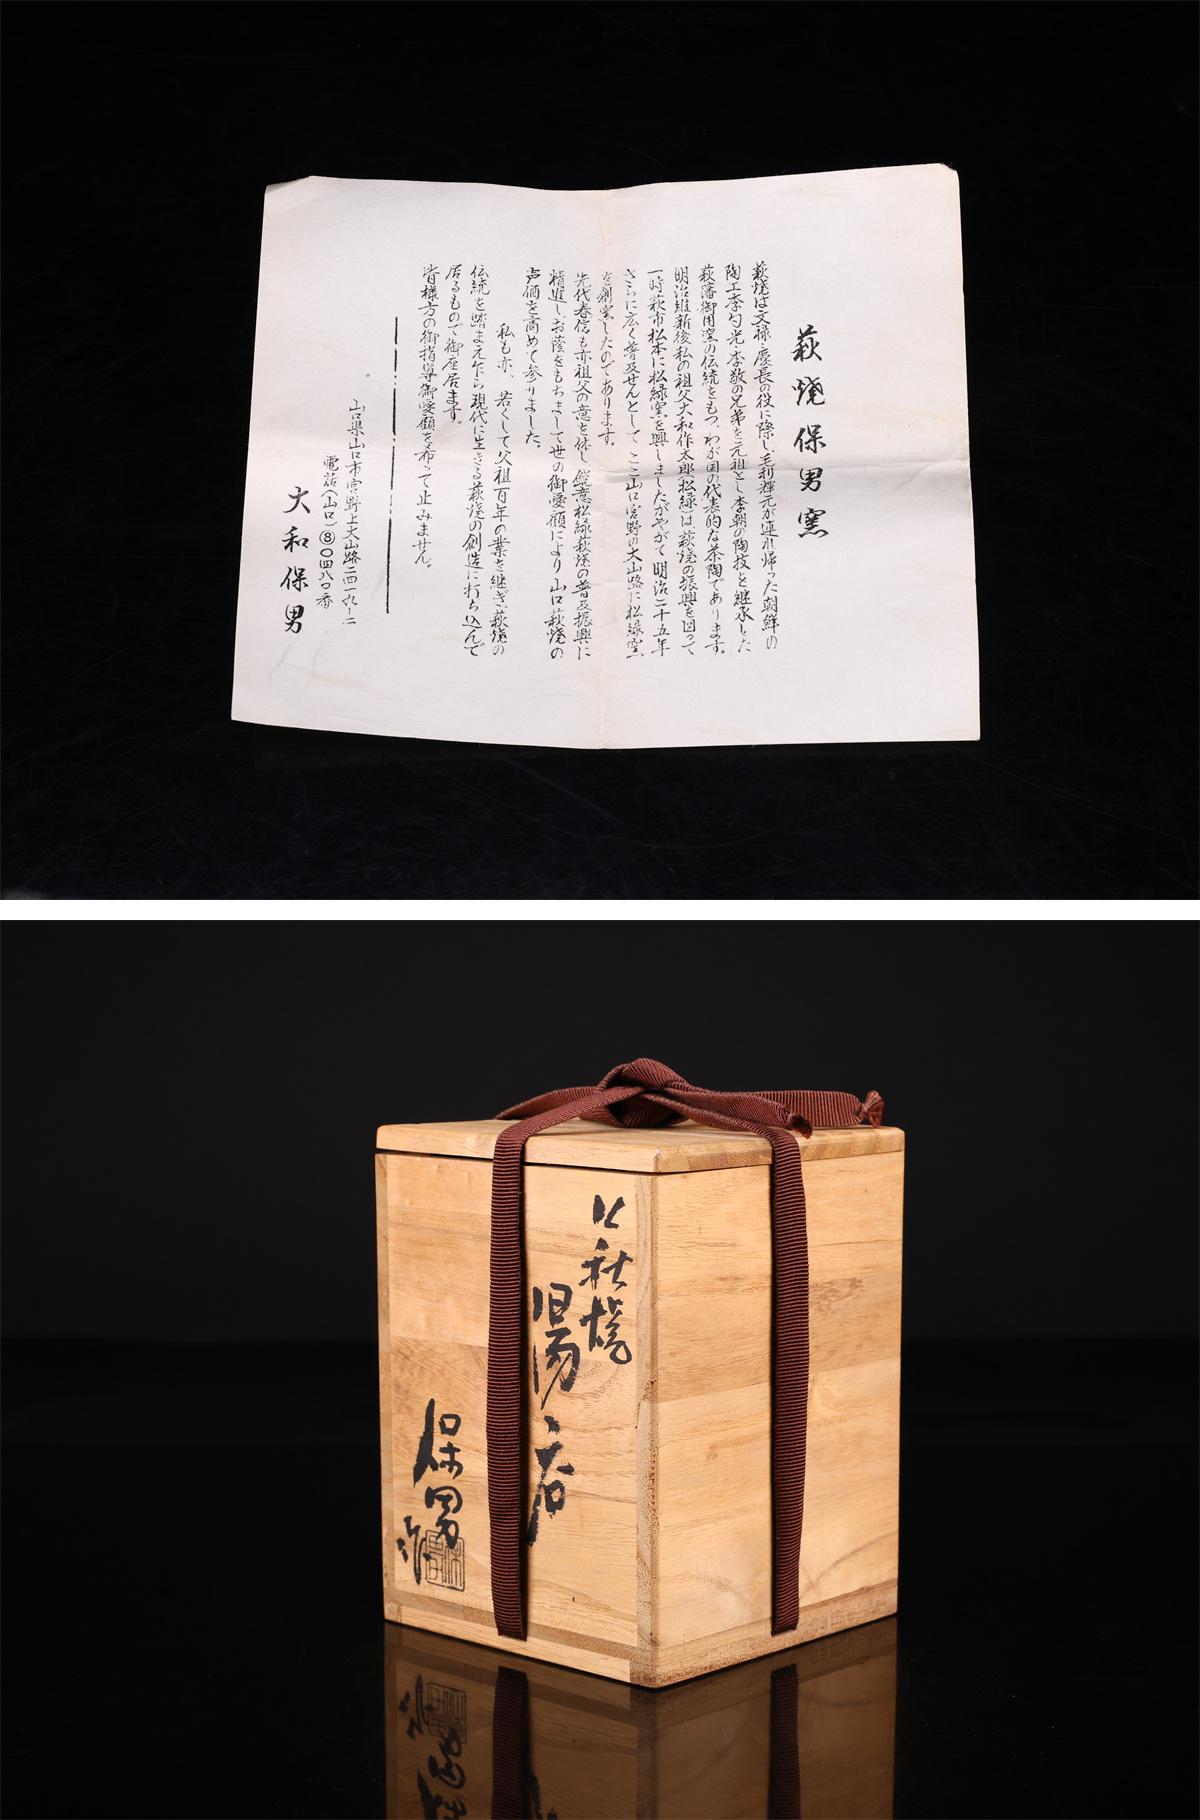 萩焼保男窯
萩焼は文禄・慶長の役に際し、毛利輝元が連れ帰った朝鮮の
陶工李勺光・李敬の兄弟を元祖とし李朝の陶技を継承した
萩藩御用窯の伝統をもつ、わが国の代表的な茶陶であります。
明治維新後私の祖父大和作太郎(松緑)は、萩焼の振興を図って
一時萩市松本に松緑窯を興しましたがやがて明治二十五年
さらに広く普及せんとして ここ山口宮野の大山路に松緑窯
を創窯したのであります。
先代春信も亦祖父の意を体し、鋭意松緑萩焼の普及振興に
精進し、お蔭をもちまして世の御愛顧により山口萩焼の
声価を高めて参りました。
私も亦、若くして父祖百年の業を継ぎ、萩焼の
伝統を踏まえ乍ら現代に生きる萩焼の創造に打ち込んで
居るもので御座居ます。
皆様方の御指導御愛顧を希って止みません。
山口県山口市宮野上大山路二四一九ノ二
電話(山口)⑧〇四八〇番
大和保男
萩焼
湯呑
保男
作